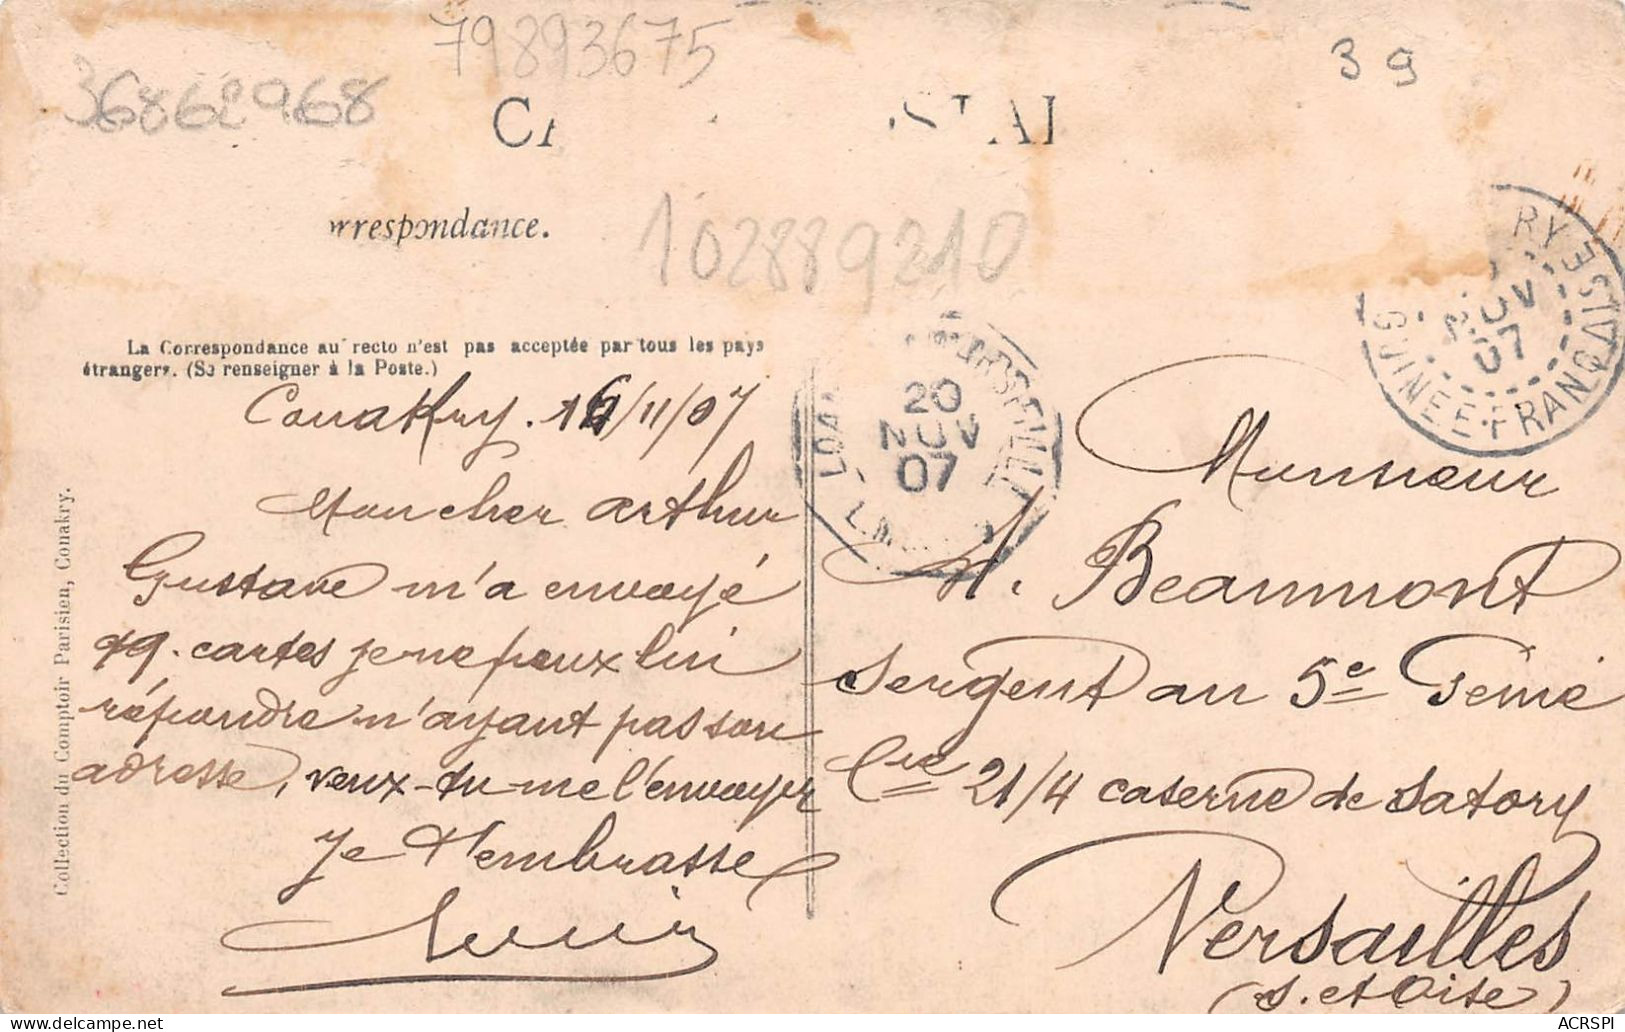 79893675
39
36862968
CA STAL
rrespondance.
102889210
RY
NOV
07
GUINÉE FRANÇAISE
La Correspondance au recto n'est pas acceptée par tous les pays
étrangers. (Se renseigner à la Poste.)
20
NOV
07
Conakry. 16/11/07
Mon cher Arthur
Gustave m'a envoyé
19. cartes je ne peux lui
répondre n'ayant pas son
adresse, veux-tu me l'envoyer
Je t'embrasse
Monsieur
A. Beaumont
Sergent au 5e Génie
Cie 21/4 caserne de Satory
Versailles
(S. et Oise)
Collection du Comptoir Parisien, Conakry.
ACRSPI